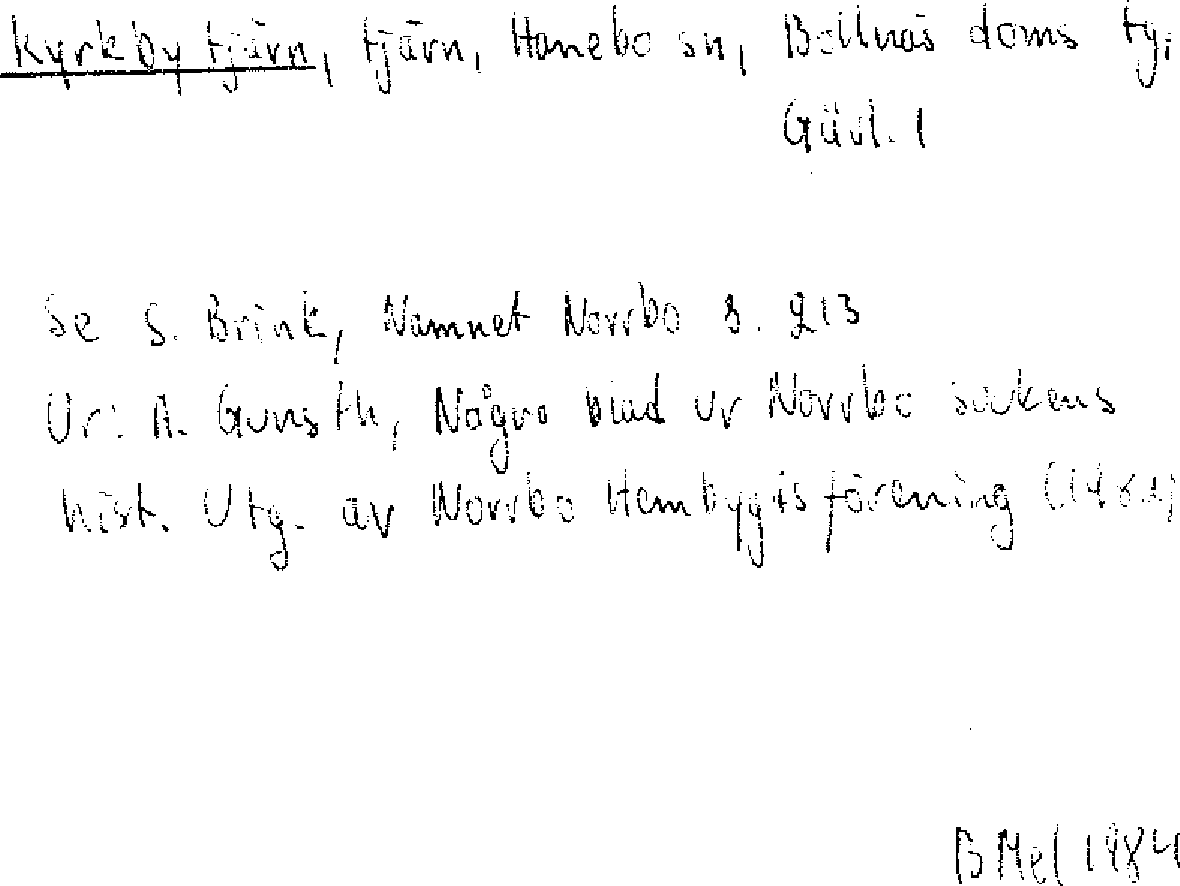 Kyrkby tjärn, tjärn, Hanebo sn, Bollnäs doms tg,
Gävl. l
Se S. Brink, Namnet Norrbo s. 213
Ur: A. Gunsth, Några blad ur Norrbo sockens
hist. Utg. av Norrbo Hembygdsförening
BMel 1984